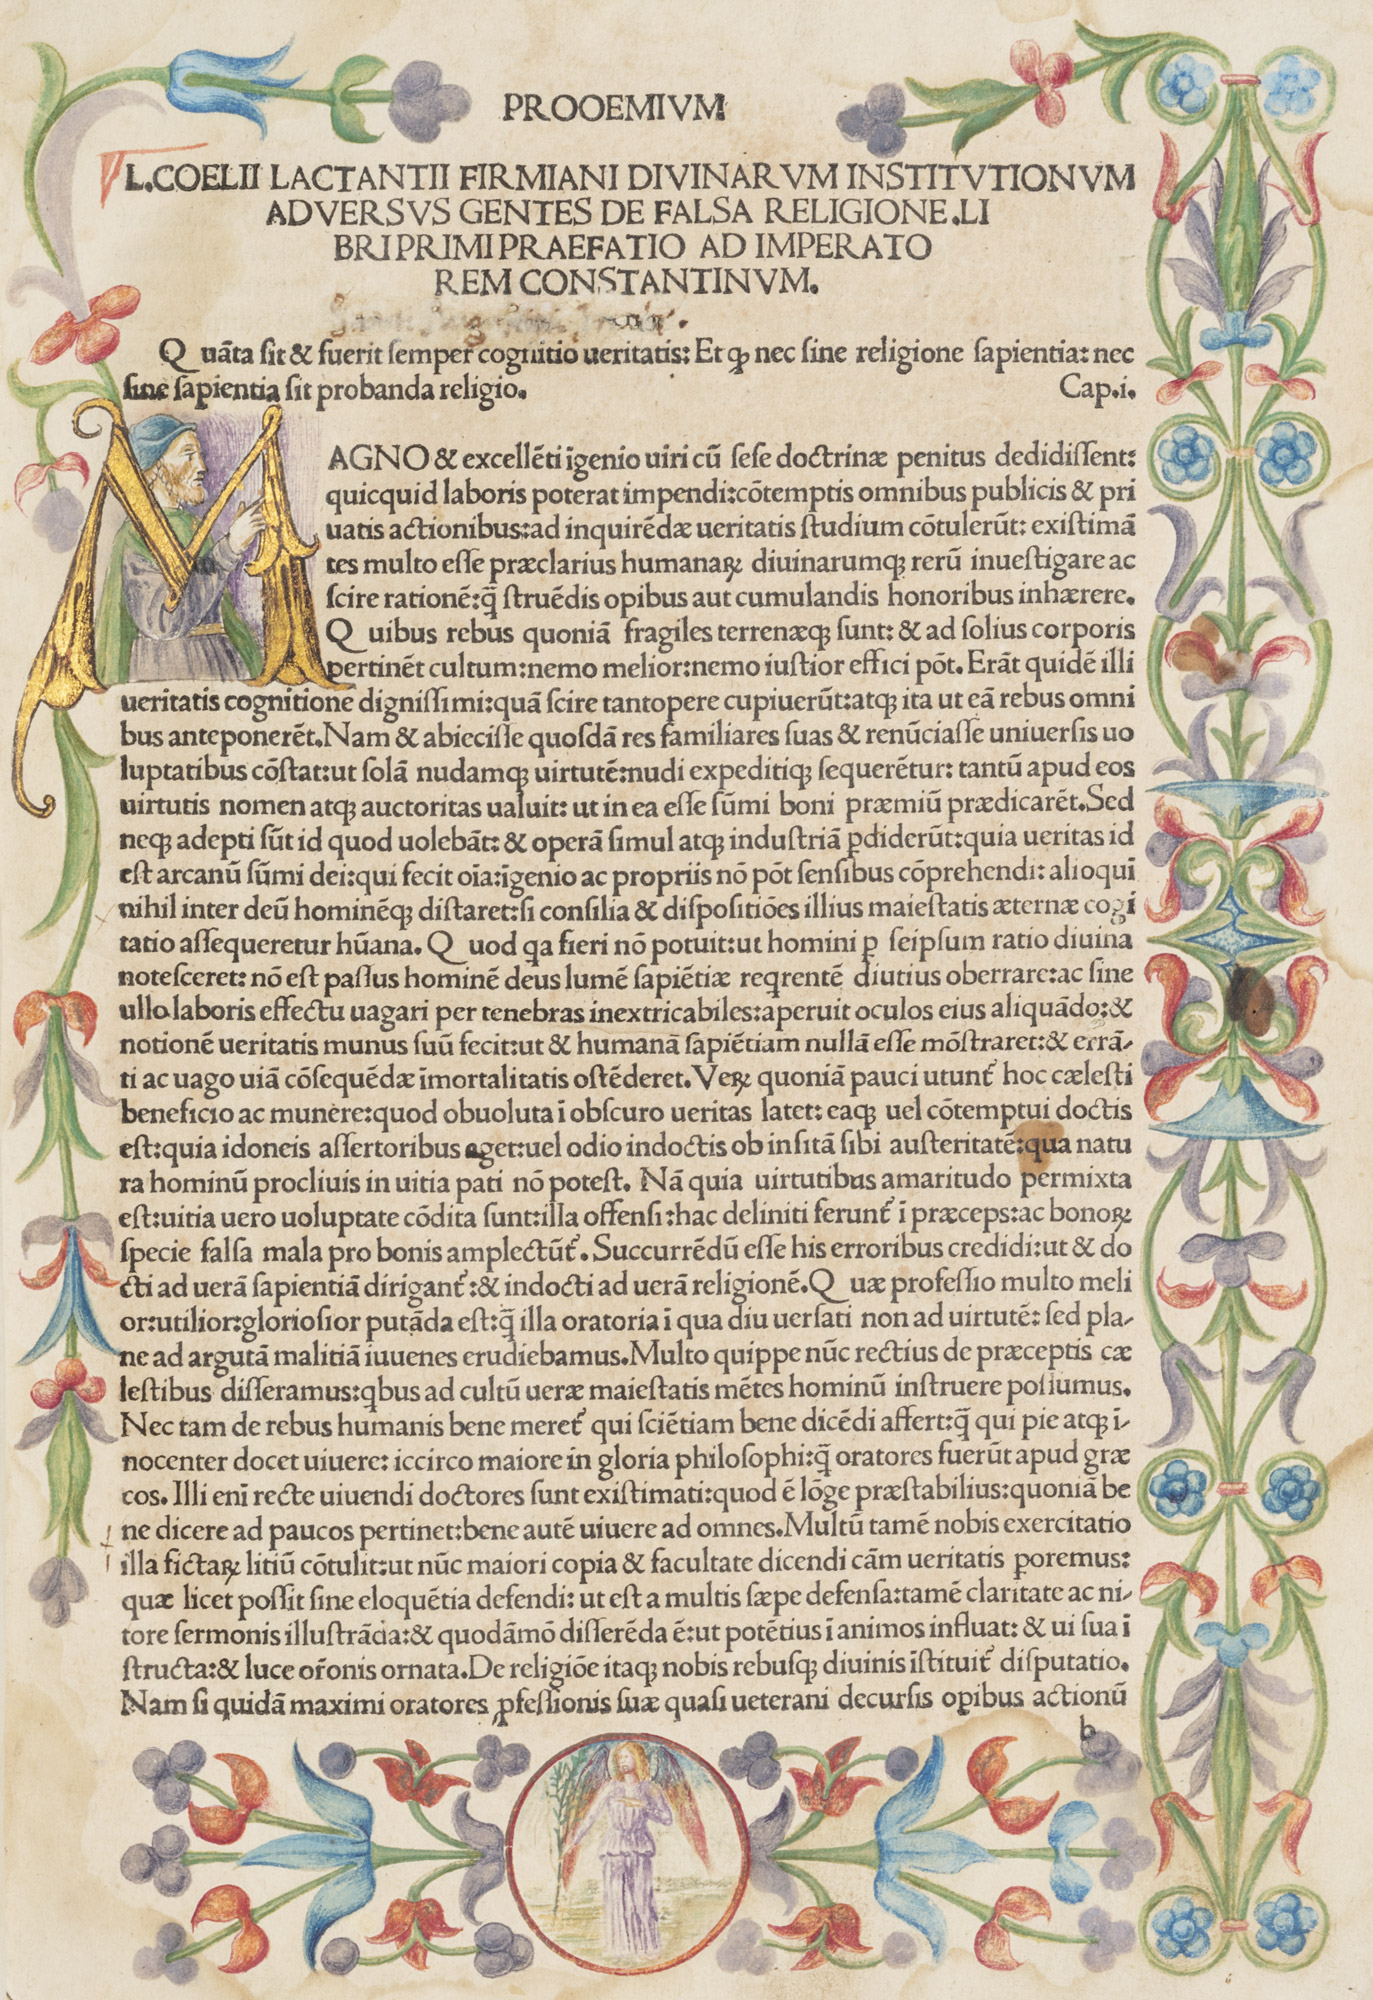 PROOEMIVM
L.COELII LACTANTII FIRMIANI DIVINARVM INSTITVTIONVM
ADVERSVS GENTES DE FALSA RELIGIONE.LI
BRI PRIMI PRAEFATIO AD IMPERATO
REM CONSTANTINVM.
Q uãta sit & fuerit semper cognitio ueritatis: Et ꝙ nec sine religione sapientia: nec
sine sapientia sit probanda religio. Cap.i.
MAGNO & excellẽti ĩgenio uiri cũ sese doctrinæ penitus dedidissent:
quicquid laboris poterat impendi:cõtemptis omnibus publicis & pri
uatis actionibus:ad inquirẽdæ ueritatis studium cõtulerũt: existimã
tes multo esse præclarius humanaꝝ diuinarumqꝫ rerũ inuestigare ac
scire rationẽ:q̃ struẽdis opibus aut cumulandis honoribus inhærere.
Q uibus rebus quoniã fragiles terrenæqꝫ sunt: & ad solius corporis
pertinẽt cultum:nemo melior:nemo iustior effici põt. Erãt quidẽ illi
ueritatis cognitione dignissimi:quã scire tantopere cupiuerũt:atqꝫ ita ut eã rebus omni
bus anteponerẽt.Nam & abiecisse quosdã res familiares suas & renũciasse uniuersis uo
luptatibus cõstat:ut solã nudamqꝫ uirtutẽ:nudi expeditiqꝫ sequerẽtur: tantũ apud eos
uirtutis nomen atqꝫ auctoritas ualuit: ut in ea esse sũmi boni præmiũ prædicarẽt.Sed
neqꝫ adepti sũt id quod uolebãt: & operã simul atqꝫ industriã ꝑdiderũt:quia ueritas id
est arcanũ sũmi dei:qui fecit oĩa:ĩgenio ac propriis nõ põt sensibus cõprehendi: alioquĩ
nihil inter deũ hominẽqꝫ distaret:si consilia & dispositiões illius maiestatis æternæ cogi
tatio assequeretur hũana. Q uod qa fieri nõ potuit:ut homini ꝑ seipsum ratio diuina
notesceret: nõ est passus hominẽ deus lumẽ sapiẽtiæ reqrentẽ diutius oberrare:ac sine
ullo laboris effectu uagari per tenebras inextricabiles:aperuit oculos eius aliquãdo:&
notionẽ ueritatis munus suũ fecit:ut & humanã sapiẽtiam nullã esse mõstraret:& errã-
ti ac uago uiã cõsequẽdæ ĩmortalitatis ostẽderet.Veꝝ quoniã pauci utunt᷑ hoc cælesti
beneficio ac munere:quod obuoluta ĩ obscuro ueritas latet: eaqꝫ uel cõtemptui doctis
est:quia idoneis assertoribus eget:uel odio indoctis ob insitã sibi austeritatẽ:qua natu
ra hominũ procliuis in uitia pati nõ potest. Nã quia uirtutibus amaritudo permixta
est:uitia uero uoluptate cõdita sunt:illa offensi:hac deliniti ferunt᷑ ĩ præceps:ac bonoꝝ
specie falsa mala pro bonis amplectũt᷑. Succurrẽdũ esse his erroribus credidi:ut & do
cti ad uerã sapientiã dirigant᷑:& indocti ad uerã religionẽ.Q uæ professio multo meli
or:utilior:gloriosior putãda est:q̃ illa oratoria ĩ qua diu uersati non ad uirtutẽ: sed pla-
ne ad argutã malitiã iuuenes erudiebamus.Multo quippe nũc rectius de præceptis cæ
lestibus disseramus:qbus ad cultũ ueræ maiestatis mẽtes hominũ instruere possumus.
Nec tam de rebus humanis bene meret᷑ qui sciẽtiam bene dicẽdi affert:q̃ qui pie atqꝫ ĩ-
nocenter docet uiuere: iccirco maiore in gloria philosophi:q̃ oratores fuerũt apud græ
cos. Illi enĩ recte uiuendi doctores sunt existimati:quod ẽ lõge præstabilius:quoniã be
ne dicere ad paucos pertinet:bene autẽ uiuere ad omnes.Multũ tamẽ nobis exercitatio
illa fictaꝝ litiũ cõtulit:ut nũc maiori copia & facultate dicendi cãm ueritatis ꝑoremus:
quæ licet possit sine eloquẽtia defendi: ut est a multis sæpe defensa:tamẽ claritate ac ni-
tore sermonis illustrãda:& quodãmõ disserẽda ẽ:ut potẽtius ĩ animos influat: & ui sua ĩ
structa:& luce or̃onis ornata.De religiõe itaqꝫ nobis rebusqꝫ diuinis ĩstituit᷑ disputatio.
Nam si quidã maximi oratores ꝓfessionis suæ quasi ueterani decursis opibus actionũ
b